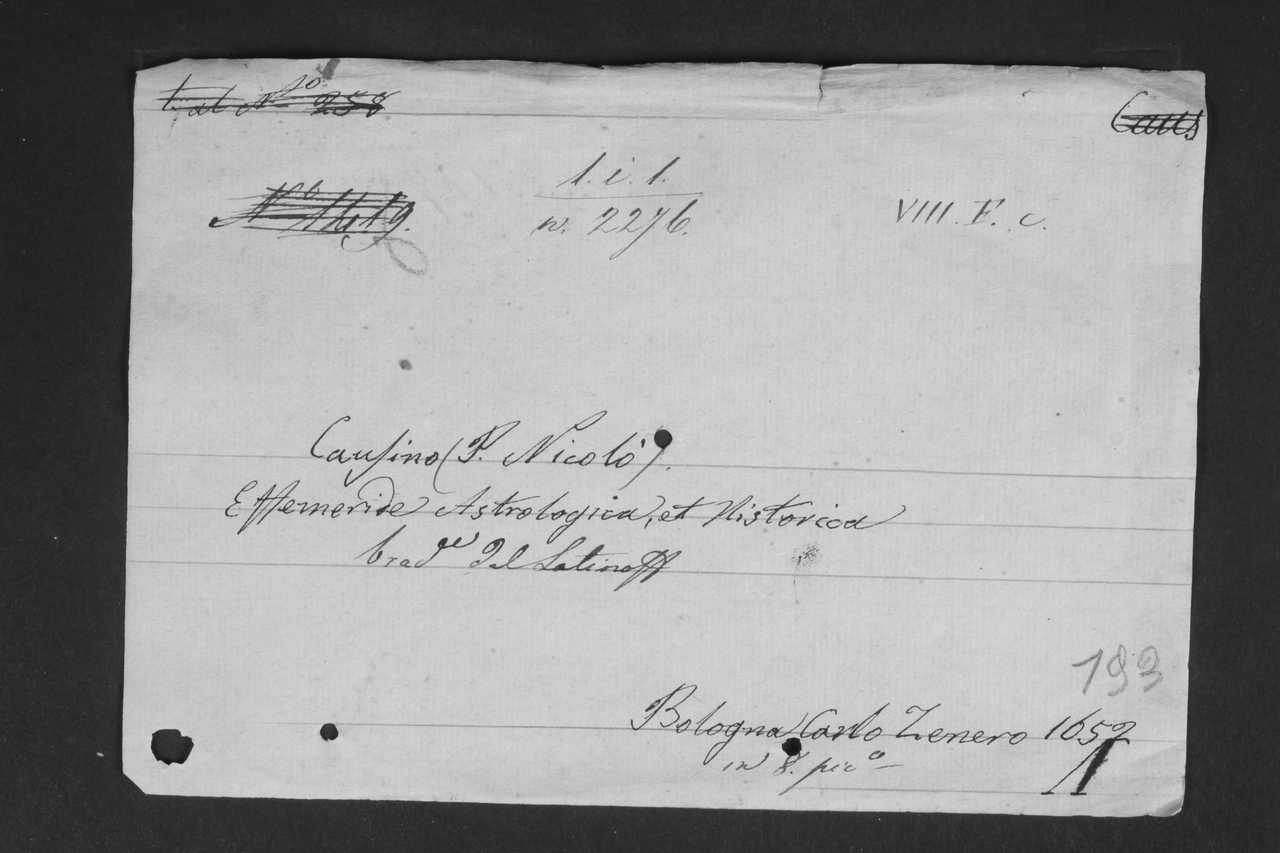 al N.º 258
Caus
Nº 1419.
1. i. 1.
n. 2276.
VIII. F. c.
Causino (P. Nicolò).
Effemeride Astrologica, et Historica
trad.ᵉ dal Latino
193
Bologna Carlo Zenero 1652
in 8. picº